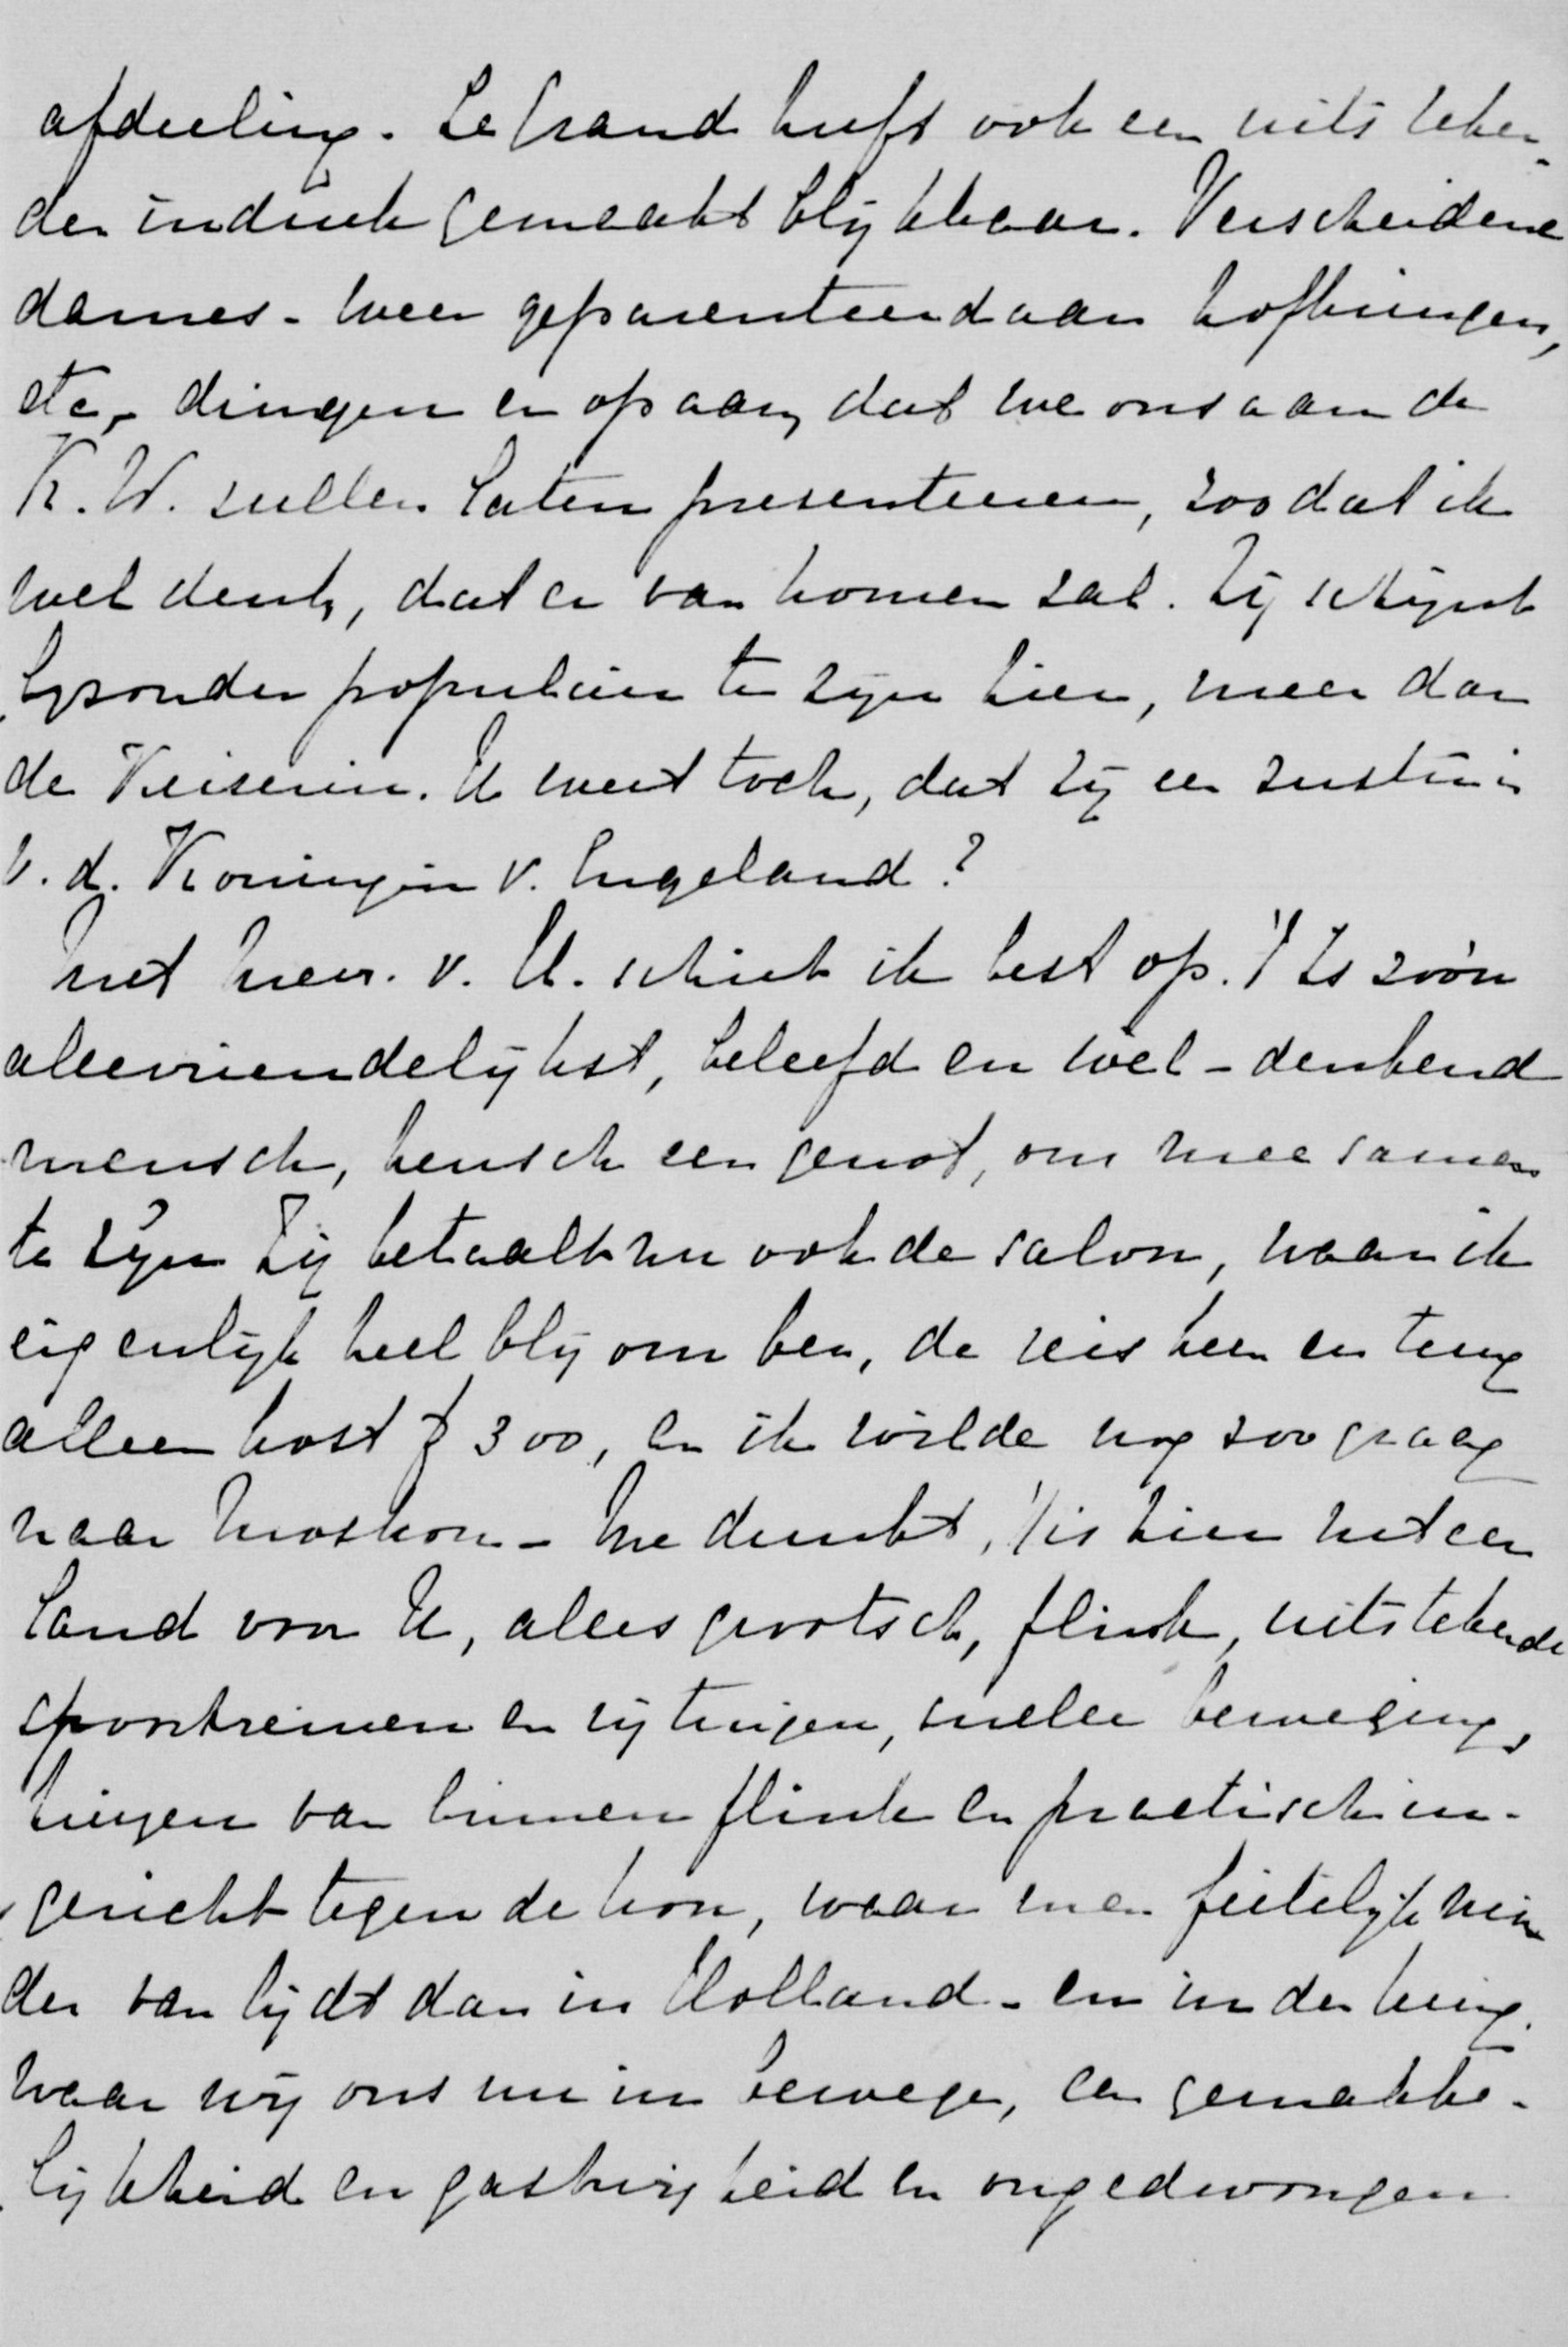 afdeeling. Le Grand heeft ook een uitsteken-
den indruk gemaakt blijkbaar. Verscheidene
dames - weer geparenteerd aan hofkringen,
etc, - dringen er op aan, dat we ons aan de
K. W. zullen laten presenteeren, zoodat ik
wel denk, dat er van komen zal. Zij schijnt
byzonder populair te zijn hier, meer dan
de Keizerin. U weet toch, dat zij een zuster is
v. d. Koningin v. Engeland?
Met mevr. v. U. schiet ik best op. 't Is zoo'n
allervriendelijkst, beleefd en wel-denkend
mensch, heusch een genot, om mee samen
te zijn Zij betaalt nu ook de salon, waar ik
eigenlijk heel blij om ben, de reis heen en terug
alleen kost f 300, en ik wilde nog zoo graag
naar Moskou - Me dunkt, 't is hier net een
land voor U, alles grootsch, flink, uitstekende
spoortreinen en rijtuigen, snelle beweging,
huizen van binnen flink en practisch in-
gericht tegen de kou, waar men feitelijk min
der van lijdt dan in Holland - en in den kring
waar wij ons nu in bewegen, een gemakke-
lijkheid en gastvrijheid en ongedwongen